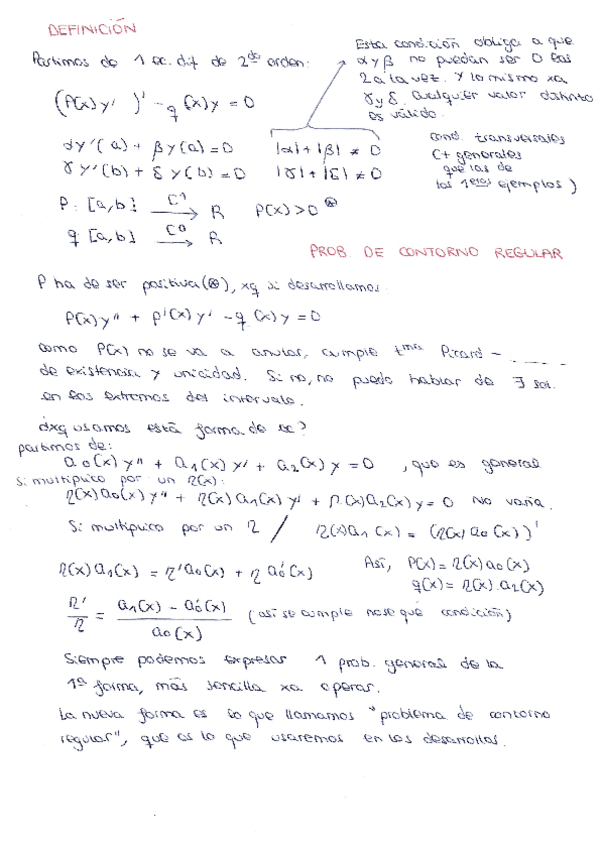 DEFINICIÓN
Partimos de 1 ec. dif de 2do orden:
(P(x) y')' - q(x) y = 0
Esta condición obliga a que
α y β no puedan ser 0 las
2 a la vez. Y lo mismo xa
γ y δ. Cualquier valor distinto
es válido.
αy'(a) + βy(a) = 0   |α| + |β| ≠ 0
γy'(b) + δy(b) = 0   |γ| + |δ| ≠ 0
cond. transversales
(+ generales
que las de
los 1eros ejemplos)
P: [a,b] C1→ R   P(x) > 0 ⊛
q: [a,b] C0→ R
PROB. DE CONTORNO REGULAR
P ha de ser positiva (⊛), xq si desarrollamos:
P(x) y'' + p'(x) y' - q(x) y = 0
como P(x) no se va a anular, cumple tma Picard -
de existencia y unicidad. Si no, no puedo hablar de ∃ sol.
en los extremos del intervalo.
¿xq usamos esta forma de ec?
partimos de:
a0(x) y'' + a1(x) y' + a2(x) y = 0, que es general
Si multiplico por un r(x):
r(x) a0(x) y'' + r(x) a1(x) y' + r(x) a2(x) y = 0 No varía.
Si multiplico por un r / r(x) a1(x) = (r(x) a0(x))'
r(x) a1(x) = r' a0(x) + r a0'(x)   Así, P(x) = r(x) a0(x)
q(x) = r(x) · a2(x)
r'/r = (a1(x) - a0'(x))/a0(x) (así se cumple nose qué condición)
Siempre podemos expresar 1 prob. general de la
1ª forma, más sencilla xa operar.
La nueva forma es lo que llamamos "problema de contorno
regular", que es lo que usaremos en los desarrollos.